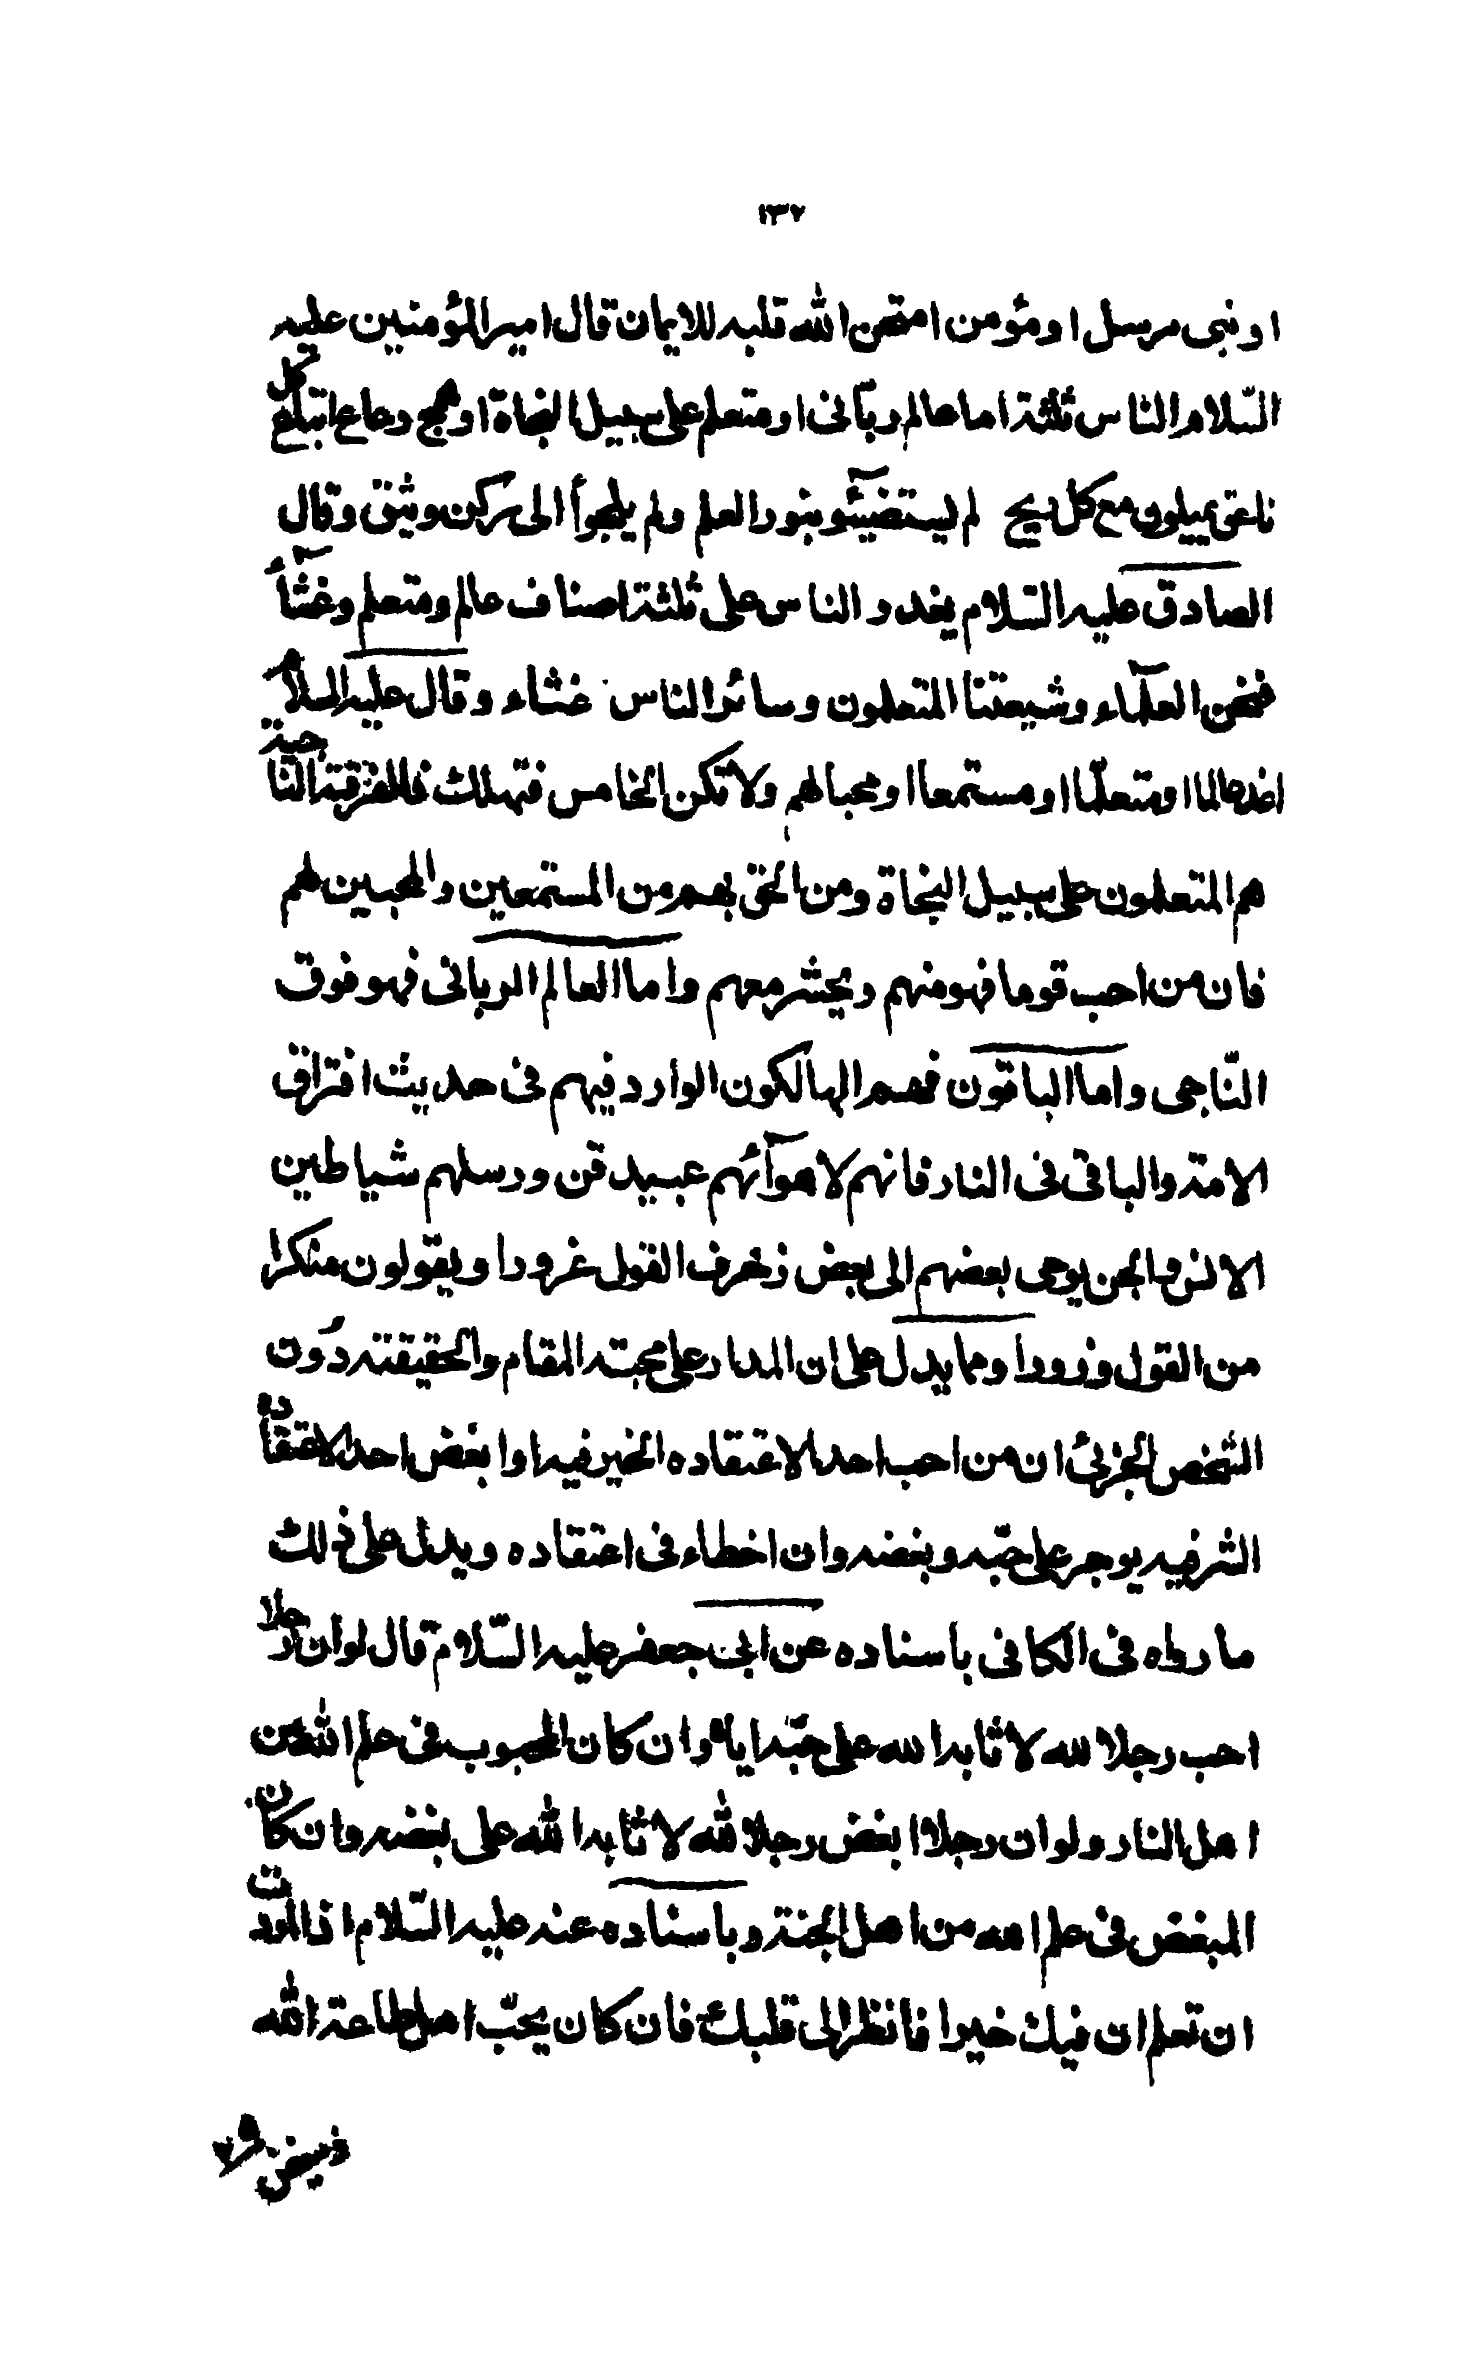 ١٣٢
او نبى مرسل او مؤمن امتحن الله قلبه للايمان قال امير المؤمنين عليه
السّلام الناس ثلثة اما عالم ربّانى او متعلم على سبيل النجاة او همج رعاع اتباع كل
ناعق يميلون مع كل ريح لم يستضيئو بنور العلم ولم يلجوأ الى ركن وثيق وقال
الصادق عليه السّلام يغدو الناس على ثلثة اصناف عالم ومتعلم وغثآء
فنحن العلمآء وشيعتنا المتعلمون وسائر الناس غثاء وقال عليه السلام
اغد عالما او متعلّما او مستمعا او محبا لهم ولا تكن الخامس فتهلك فالفرقة الناجية
هم المتعلمون على سبيل النجاة ومن الحق بهم من المستمعين والمحبين لهم
فان من احب قوما فهو منهم ويحشر معهم واما العالم الربانى فهو فوق
النّاجى واما الباقون فهم الهالكون الوارد فيهم فى حديث افتراق
الامة والباقى فى النار فانهم لاهوآئهم عبيد قن ورسلهم شياطين
الانس والجن يوحى بعضهم الى بعض زخرف القول غرورا ويقولون منكرا
من القول وزورا ومما يدل على ان المدار على محبته المقام والحقيقة دُون
الشخص الجزئى ان من احب احدا لاعتقاده الخير فيه او ابغض احدا لاعتقاده
الشر فيه يوجر على حبّه وبغضه وان اخطاء فى اعتقاده ويدل على ذلك
ما رواه فى الكافى باسناده عن ابى جعفر عليه السّلام قال لو ان رجلا
احب رجلا لله لاثابه الله على حبّه اياه وان كان المحبوب فى علم الله من
اهل النار ولو ان رجلا ابغض رجلا لله لاثابه الله على بغضه وان كان
المبغض فى علم الله من اهل الجنة وباسناده عنه عليه السّلام اذا اردت
ان تعلم ان فيك خيرا فانظر الى قلبك فان كان يحبّ اهل طاعة الله